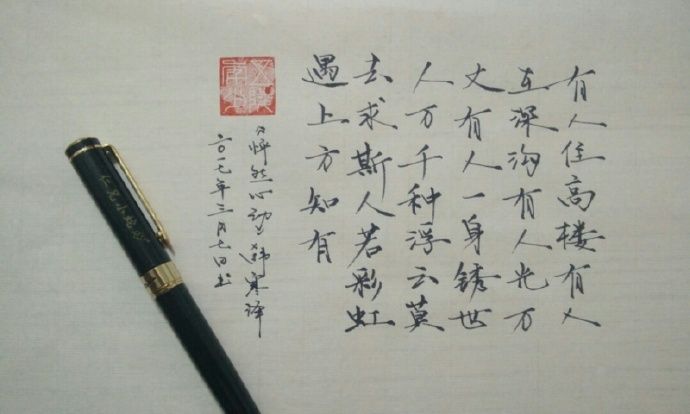 有人住高楼有人
在深沟有人光万
丈有人一身锈世
人万千种浮云莫
去求斯人若彩虹
遇上方知有
《怦然心动》韩寒译
二〇一七年三月七日书